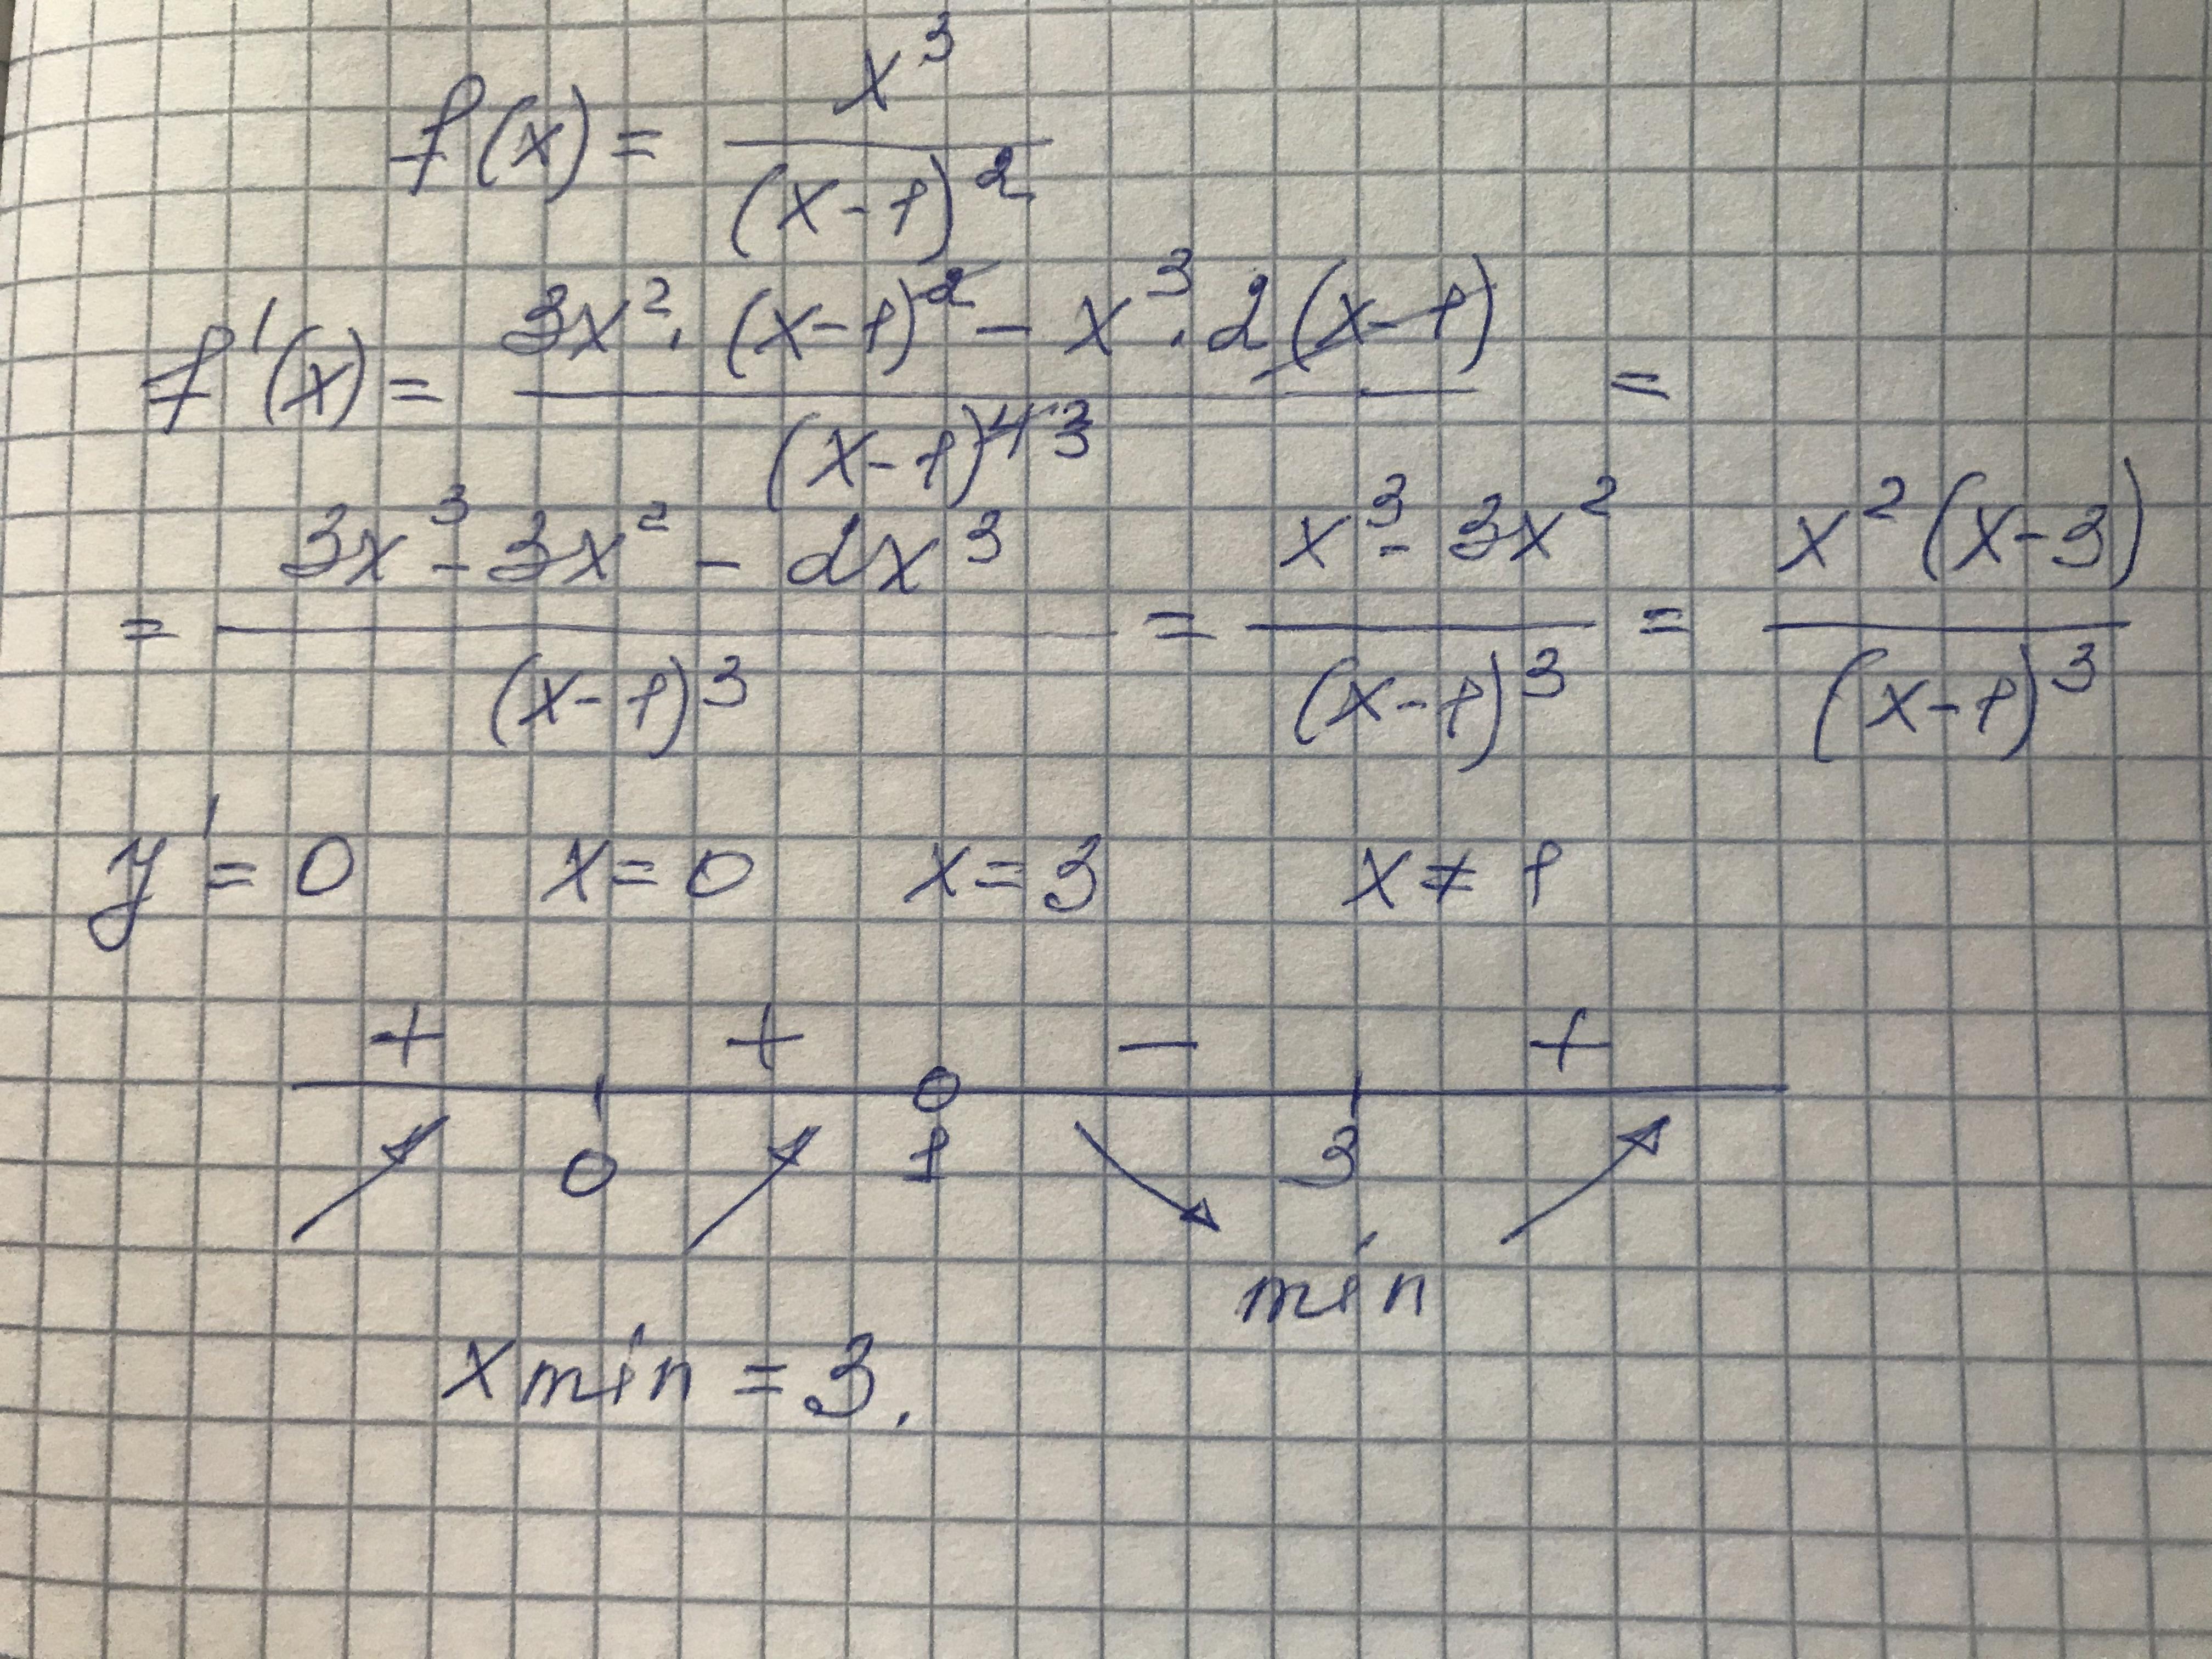 f(x) = x³ / (x-1)²
f'(x) = (3x² · (x-1)² - x³ · 2(x-1)) / (x-1)⁴ ³ =
= (3x³ - 3x² - 2x³) / (x-1)³ = (x³ - 3x²) / (x-1)³ = x²(x-3) / (x-1)³
y' = 0 x = 0 x = 3 x ≠ 1
+ + - +
0 1 3
min
x min = 3.